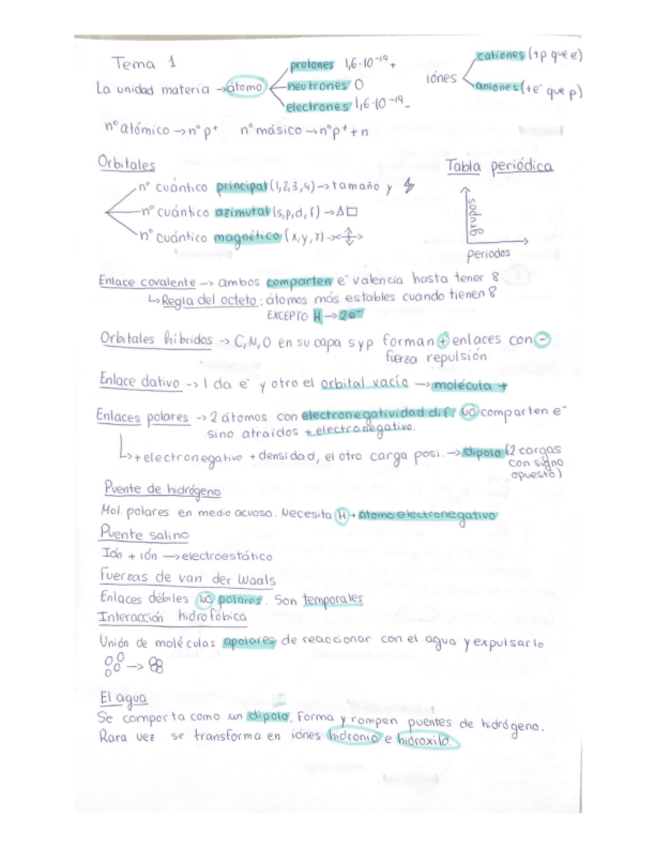 Tema 1
protones 1,6·10⁻¹⁹ +
La unidad materia → átomo
neutrones 0
electrones 1,6·10⁻¹⁹ -
iónes
cationes (+p que e)
aniones (+e⁻ que p)
nº atómico → nº p⁺ nº másico → nº p⁺ + n
Orbitales
nº cuántico principal (1,2,3,4) → tamaño y
nº cuántico azimutal (s,p,d,f) →
nº cuántico magnético (x,y,z) →
Tabla periódica
grupos
periodos
Enlace covalente → ambos comparten e⁻ valencia hasta tener 8
↳ Regla del octeto: átomos más estables cuando tienen 8
EXCEPTO H → 2e⁻
Orbitales híbridos → C, N, O en su capa s y p forman + enlaces con -
fuerza repulsión
Enlace dativo → 1 da e⁻ y otro el orbital vacío → molécula +
Enlaces polares → 2 átomos con electronegatividad dif. NO comparten e⁻
sino atraídos + electronegativo.
↳ + electronegativo + densidad, el otro carga posi. → dipolo (2 cargas
con signo
opuesto)
Puente de hidrógeno
Mol. polares en medio acuoso. Necesita H + átomo electronegativo
Puente salino
Ión + ión → electroestático
Fuerzas de van der Waals
Enlaces débiles NO polares. Son temporales
Interacción hidrofóbica
Unión de moléculas apolares de reaccionar con el agua y expulsarlo
El agua
Se comporta como un dipolo. Forma y rompen puentes de hidrógeno.
Rara vez se transforma en iónes hidronio e hidroxilo.